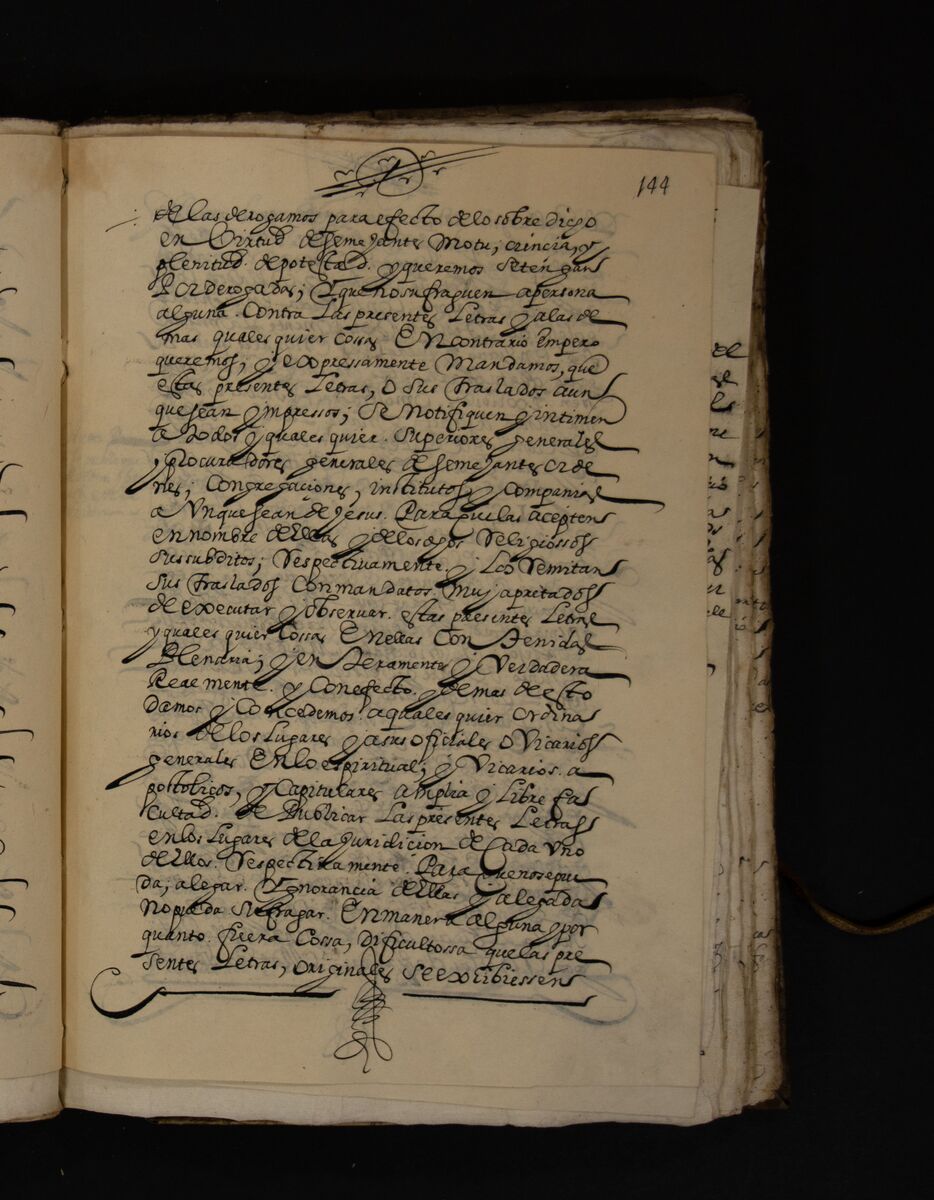 144
de las derogamos para efecto delo sobre dicho
en Virtud de semejantes Motu, ciencia, y
plenitud de potestad. y queremos setengan
Por derogadas; y que no sufraguen apersona
alguna. Contra Las presentes Letras yalas de
mas quales quier cosas En contrario Empero
queremos, y expressamente Mandamos, que
estas presentes Letras, o sus Traslados aun
que sean ympressos; Se Notifiquen y intimen
a todos y quales quier. superiores generales
y procuradores generales de semejantes orde
nes; Congregaciones, institutos y Companias
a Vnque sean de Jesus. Para que las acepten
en nombre de Ellas y delos dhos Religiossos
sus subditos; Respectivamente. y Los Remitan
sus Traslados Con mandatos Muy apretados
de executar y observar. estas presentes Letras
y quales quier Cossas En ellas Con tenidas
Plenaria; y en teramente y Verdadera
Reale mente. y Con efecto. y demas de esto
Damos y Concedemos a quales quier ordina
rios de los Lugares y asus oficiales o Vicarios
generales En lo espiritual; y Vicarios. a
postolicos, y Capitulares amplia y Libre fa
cultad. de Publicar Las presentes Letras
en los Lugares de la Juridicion de Cada vno
de Ellos. Respectiva mente. Para que no se pue
da; alegar. Ygnorancia de Ellas y alegada
No pueda Sufragar. En manera alguna y por
quanto. fuera Cossa, Dificultossa que las pre
sentes Letras, originales se exhibiessen